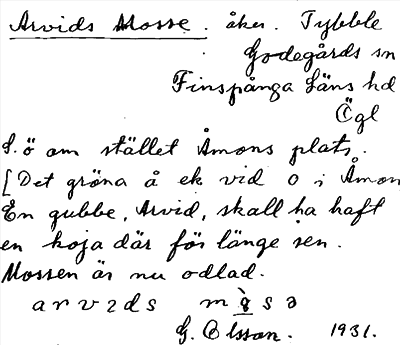 Arvids Mosse. åker. Tybble
Godegårds sn
Finspånga Läns hd
Ögl
S. ö om stället Åmons plats.
[Det gröna å ek vid o i Åmon
En gubbe, Arvid, skall ha haft
en koja där för länge sen.
Mossen är nu odlad.
arvɿds mòsə
G. Olsson. 1931.